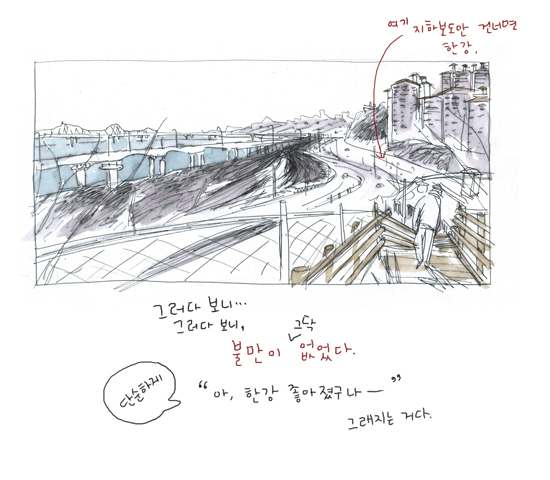 여기 지하보도만 건너면
한강.
그러다 보니...
그러다 보니,
그닥
불만이 없었다.
단순하게
“아, 한강 좋아졌구나 — ”
그래지는 거다.